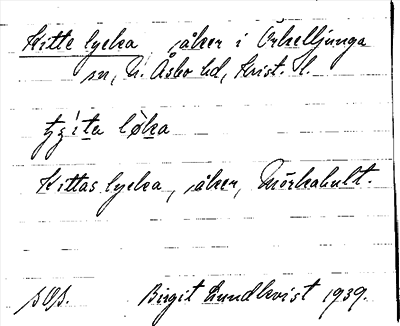 Kitte lycka, åker i Örkelljunga
sn, N. Åsbo hd, Krist. l.
Kittas lycka, åker, Mörkahult.
Birgit Lundkvist 1939.